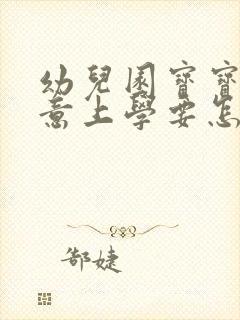 幼兒園寶寶
意上學要怎
郜婕